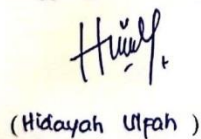 (Hidayah Ulfah )